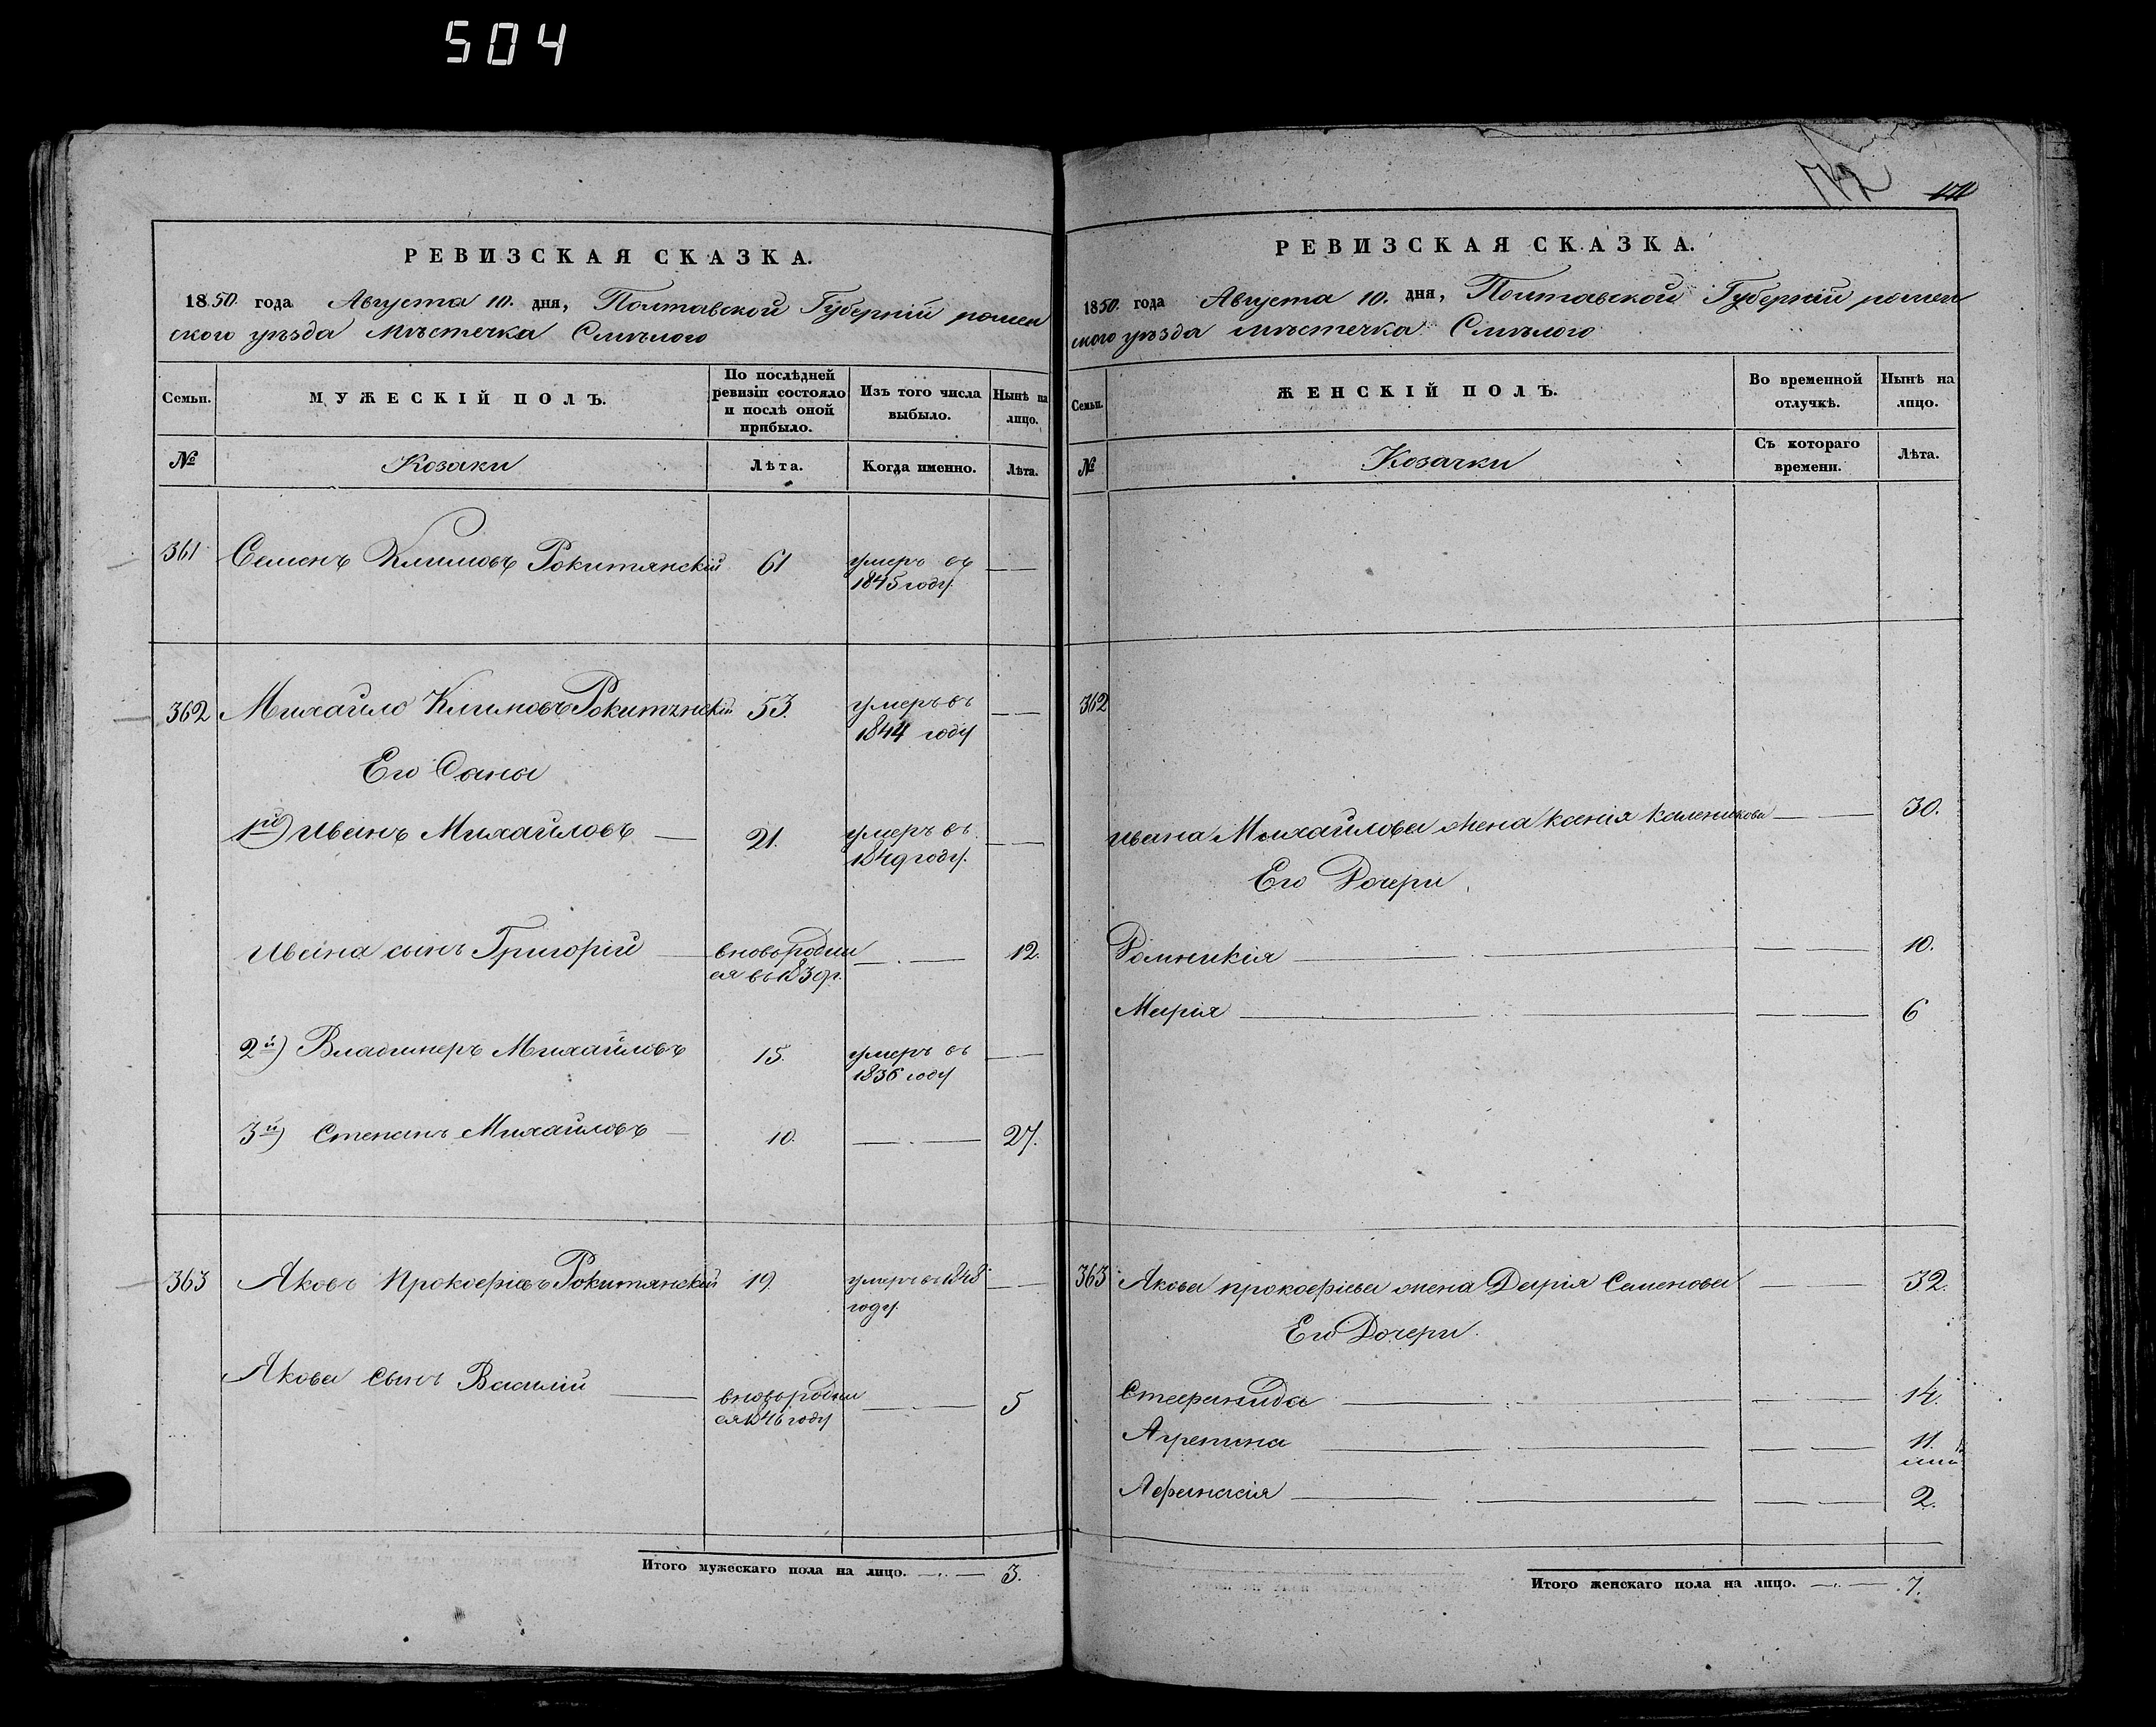 504
РЕВИЗСКАЯ СКАЗКА.
1850. года Августа 10. дня, Полтавской Губерніи ромен
ского уѣзда мѣстечка Смѣлого
Семьи.
МУЖЕСКІЙ ПОЛЪ.
По послѣдней
ревизіи состояло
и послѣ оной
прибыло.
Изъ того числа
выбыло.
Нынѣ на
лицо.
№
Козаки
Лѣта.
Когда именно.
Лѣта.
361 Семенъ Климовъ Рокитянскій 61 умеръ въ
1845 году.
362 Михайло Климовъ Рокитянскій 53. умеръ въ
1844 году
Его Сына
1й) Иванъ Михайловъ 21. умеръ въ
1849 году.
Ивана сынъ Григорій вновь родил 12.
ся въ 1839 г.
2й) Владимеръ Михайловъ 15. умеръ въ
1836 году
3й) Степанъ Михайловъ 10. 27.
363 Яковъ Прокофіевъ Рокитянскій 19. умеръ въ 1848
году.
Якова Сынъ Василій вновь родил 5
ся 1846 году
Итого мужескаго пола на лицо. 3.
172
171
РЕВИЗСКАЯ СКАЗКА.
1850. года Августа 10. дня, Полтавской Губерніи ромен
ского уѣзда мѣстечка Смѣлого
Семьи.
ЖЕНСКІЙ ПОЛЪ.
Во временной
отлучкѣ.
Нынѣ на
лицо.
№
Козачки
Съ котораго
времени.
Лѣта.
362
Ивана Михайлова жена Ксенія Каленикова 30.
Его Дочери
Домникія 10.
Марія 6
363 Якова прокофіева жена Дарія Семенова 32.
Его Дочери.
Стефанида 14.
Агрепина 11.
Афанасія 2.
Итого женскаго пола на лицо. 7.